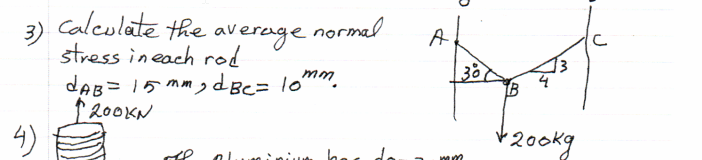 3) Calculate the average normal
stress in each rod
dAB = 15 mm, dBC = 10 mm.
A
C
30°
3
4
B
200kg
200KN
4)